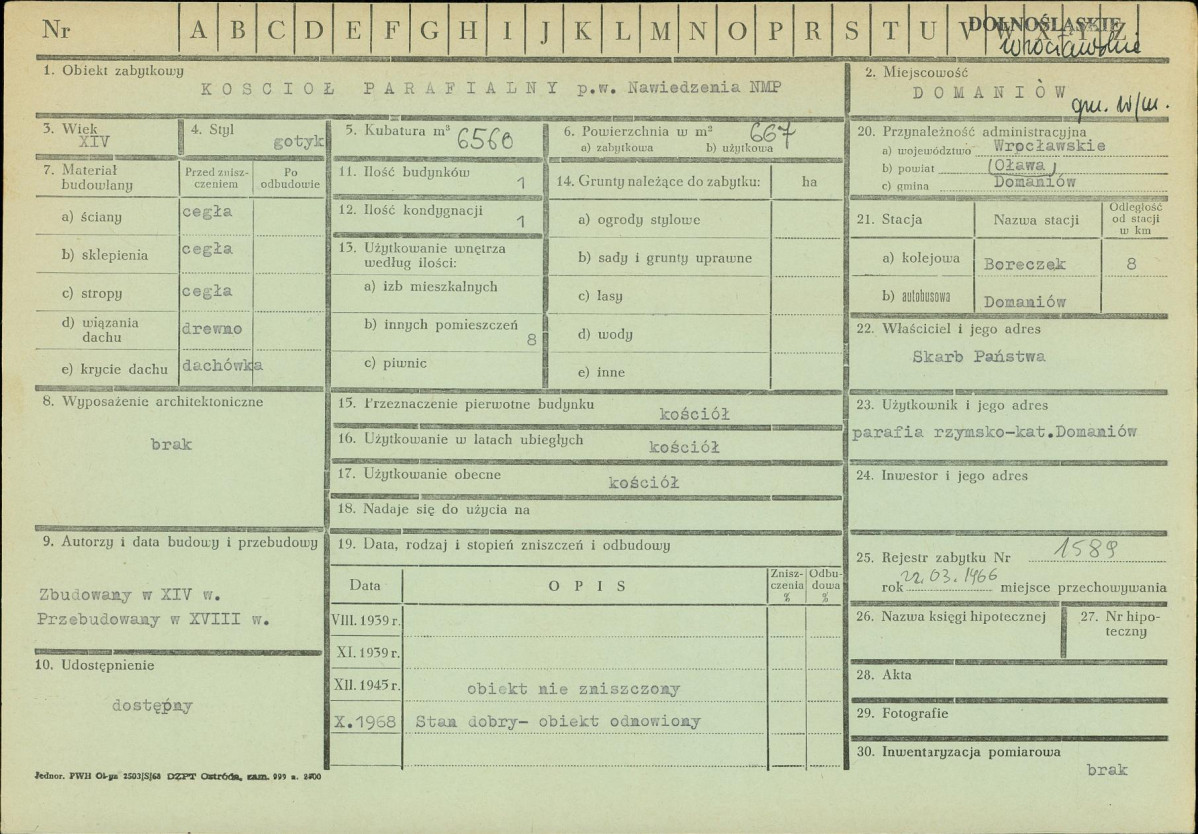 Nr A B C D E F G H I J K L M N O P R S T U V W X Y Z
DOLNOŚLĄSKIE
wrocławskie
1. Obiekt zabytkowy
KOSCIOŁ PARAFIALNY p.w. Nawiedzenia NMP
2. Miejscowość
DOMANIÓW
gm. w/m.
3. Wiek
XIV
4. Styl
gotyk
5. Kubatura m³ 6560
6. Powierzchnia w m² 667
a) zabytkowa b) użytkowa
7. Materiał budowlany
Przed zniszczeniem
Po odbudowie
a) ściany cegła
b) sklepienia cegła
c) stropy cegła
d) wiązania dachu drewno
e) krycie dachu dachówka
8. Wyposażenie architektoniczne
brak
9. Autorzy i data budowy i przebudowy
Zbudowany w XIV w.
Przebudowany w XVIII w.
10. Udostępnienie
dostępny
11. Ilość budynków 1
12. Ilość kondygnacji 1
13. Użytkowanie wnętrza
według ilości:
a) izb mieszkalnych
b) innych pomieszczeń 8
c) piwnic
14. Grunty należące do zabytku: ha
a) ogrody stylowe
b) sady i grunty uprawne
c) lasy
d) wody
e) inne
15. Przeznaczenie pierwotne budynku kościół
16. Użytkowanie w latach ubiegłych kościół
17. Użytkowanie obecne kościół
18. Nadaje się do użycia na
19. Data, rodzaj i stopień zniszczeń i odbudowy
Data O P I S Zniszczenia % Odbudowa %
VIII. 1939 r.
XI. 1939 r.
XII. 1945 r. obiekt nie zniszczony
X.1968 Stan dobry- obiekt odnowiony
20. Przynależność administracyjna
a) województwo Wrocławskie
b) powiat (Oława)
c) gmina Domaniów
21. Stacja Nazwa stacji Odległość od stacji w km
a) kolejowa Boreczek 8
b) autobusowa Domaniów
22. Właściciel i jego adres
Skarb Państwa
23. Użytkownik i jego adres
parafia rzymsko-kat.Domaniów
24. Inwestor i jego adres
25. Rejestr zabytku Nr 1589
rok 22.03.1966 miejsce przechowywania
26. Nazwa księgi hipotecznej
27. Nr hipoteczny
28. Akta
29. Fotografie
30. Inwentaryzacja pomiarowa
brak
Jednor. PWH Ol-yn 2503|S|68 DZPT Ostróda, zam. 999 n.